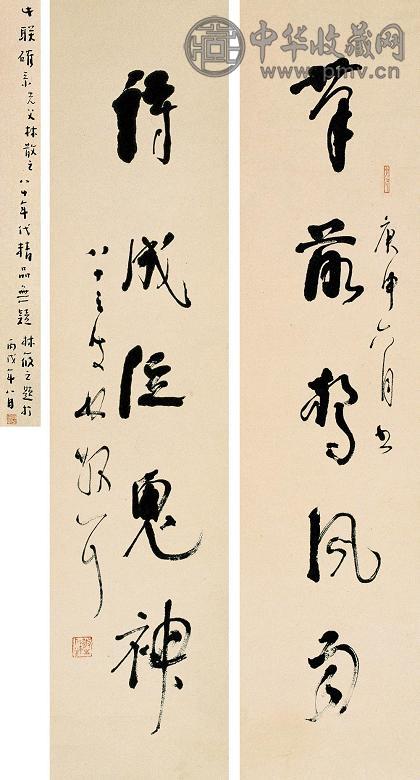 中华收藏网
www.pmv.cn
筆落驚風雨
庚申六月書
詩成泣鬼神
八十三叟林散耳
此联確系先父林散之八十年代精品無疑 林筱之題於
丙戌年八月